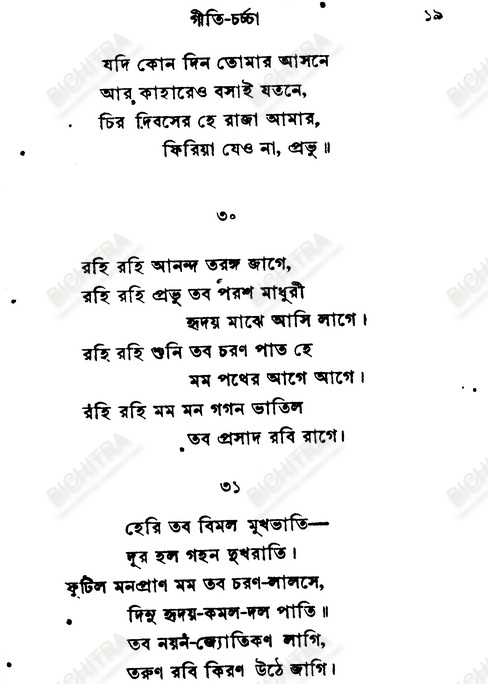 গীতি-চর্চ্চা ১৯
যদি কোন দিন তোমার আসনে
আর কাহারেও বসাই যতনে,
চির দিবসের হে রাজা আমার,
ফিরিয়া যেও না, প্রভু॥
৩০
রহি রহি আনন্দ তরঙ্গ জাগে,
রহি রহি প্রভু তব পরশ মাধুরী
হৃদয় মাঝে আসি লাগে।
রহি রহি শুনি তব চরণ পাত হে
মম পথের আগে আগে।
রহি রহি মম মন গগন ভাতিল
তব প্রসাদ রবি রাগে।
৩১
হেরি তব বিমল মুখভাতি—
দূর হল গহন দুখরাতি।
ফুটিল মনপ্রাণ মম তব চরণ-লালসে,
দিনু হৃদয়-কমল-দল পাতি॥
তব নয়ন-জ্যোতিকণ লাগি,
তরুণ রবি কিরণ উঠে জাগি।
BICHITRA